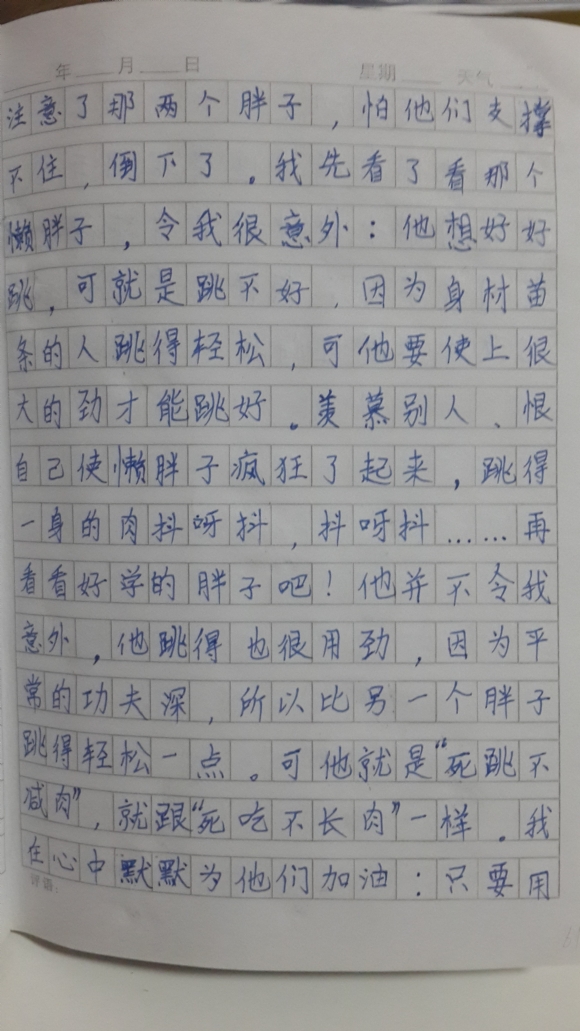 年 月 日 星期 天气
注意了那两个胖子，怕他们支撑
不住，倒下了。我先看了看那个
懒胖子，令我很意外：他想好好
跳，可就是跳不好，因为身材苗
条的人跳得轻松，可他要使上很
大的劲才能跳好。羡慕别人、恨
自己使懒胖子疯狂了起来，跳得
一身的肉抖呀抖，抖呀抖……再
看看好学的胖子吧！他并不令我
意外，他跳得也很用劲，因为平
常的功夫深，所以比另一个胖子
跳得轻松一点。可他就是“死跳不
减肉”，就跟“死吃不长肉”一样。我
在心中默默为他们加油：只要用
评语：